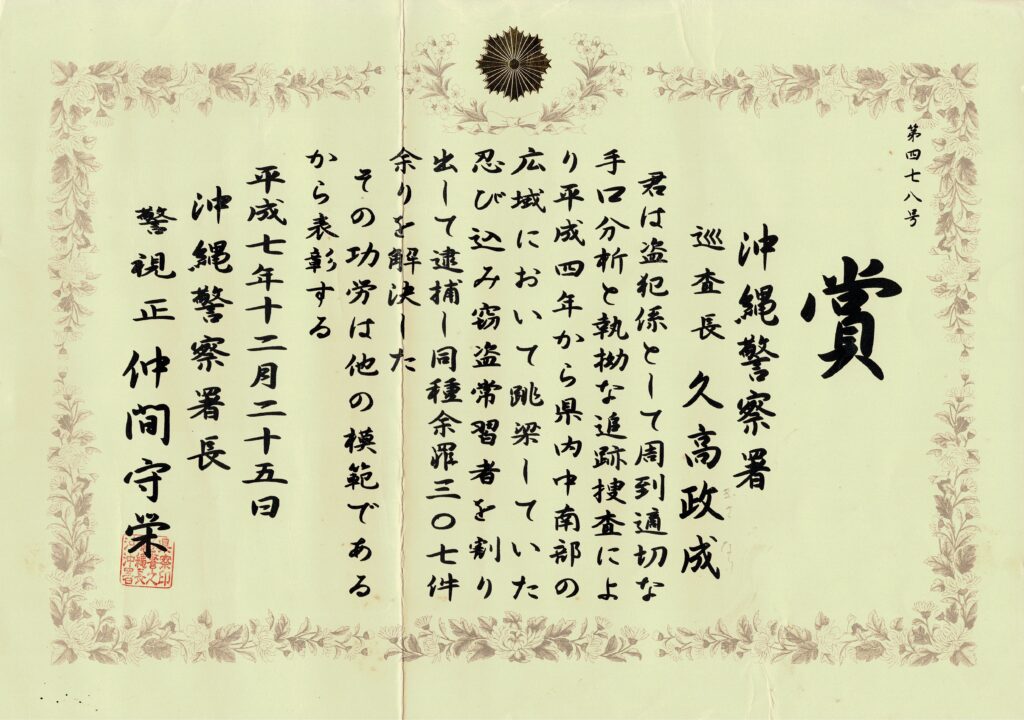 第四七八号
賞
沖縄警察署
巡査長 久高政成
君は盗犯係として周到適切な
手口分析と執拗な追跡捜査によ
り平成四年から県内中南部の
広域において跳梁していた
忍び込み窃盗常習者を割り
出して逮捕し同種余罪三〇七件
余りを解決した
その功労は他の模範である
から表彰する
平成七年十二月二十五日
沖縄警察署長
警視正 仲間守栄